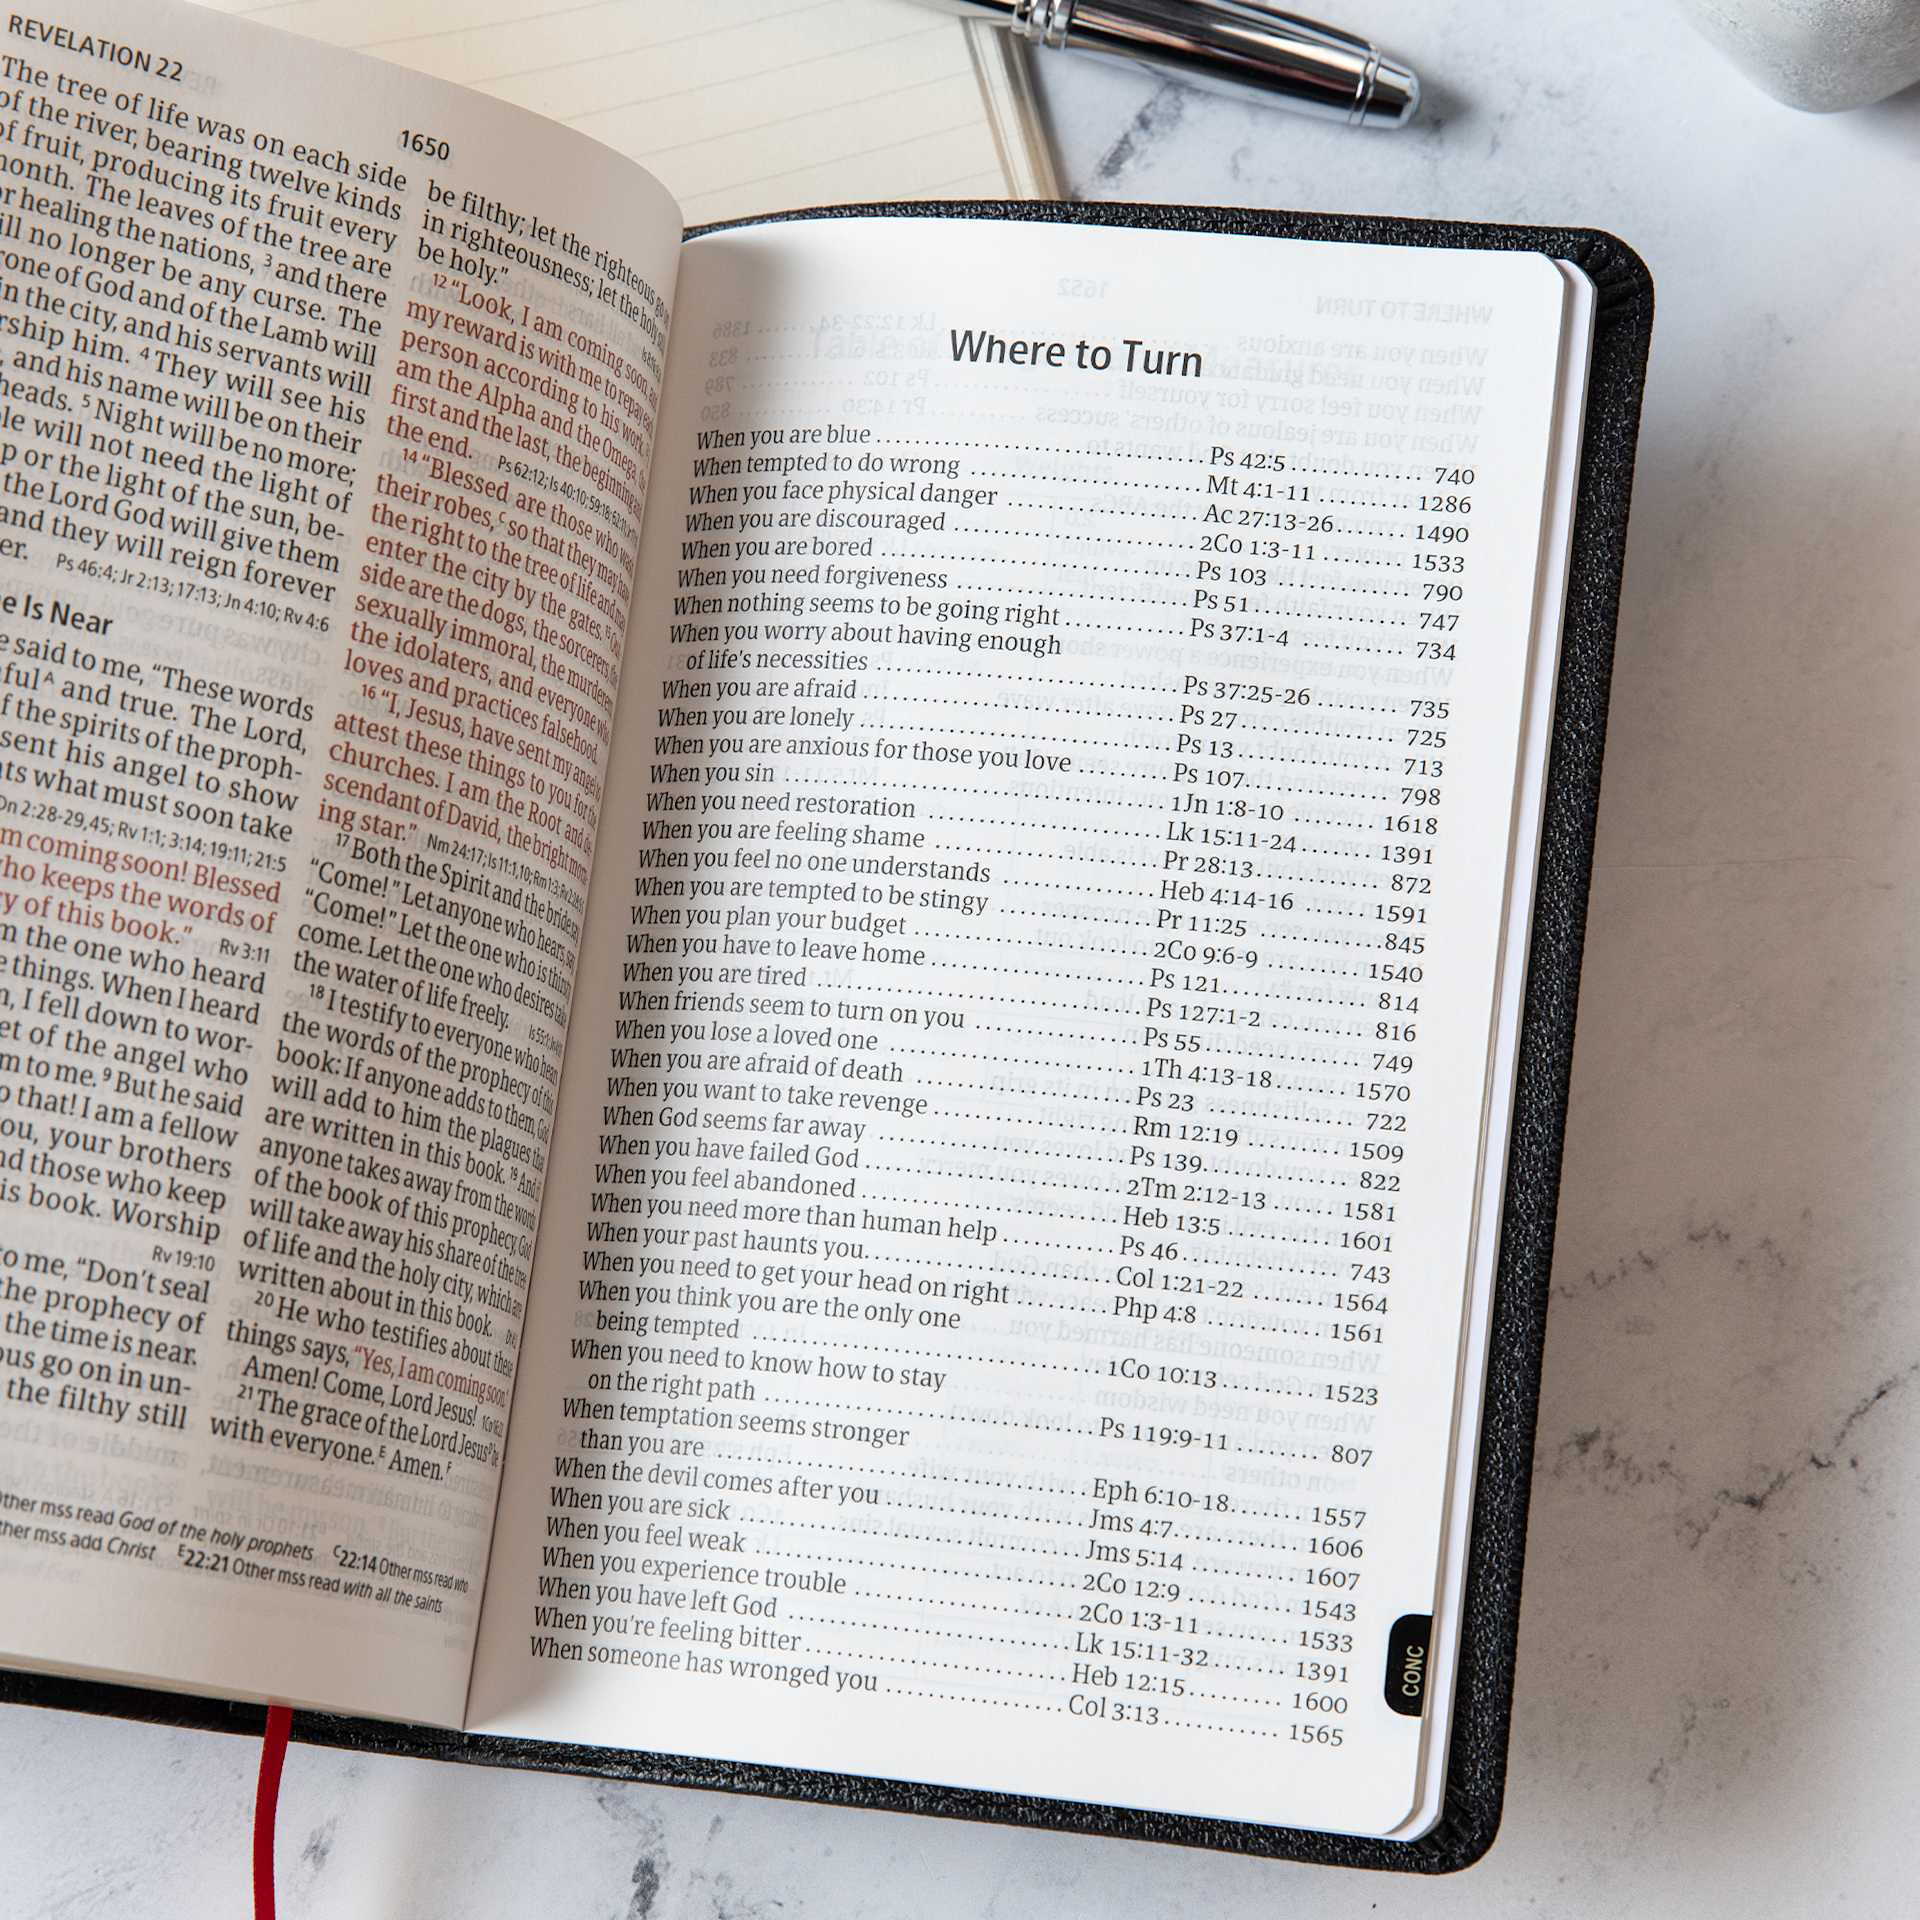 REVELATION 22
1650
The tree of life was on each side
of the river, bearing twelve kinds
of fruit, producing its fruit every
month. The leaves of the tree are
healing the nations, 3 and there
no longer be any curse. The
of God and of the Lamb will
in the city, and his servants will
him. 4 They will see his
and his name will be on their
5 Night will be no more;
will not need the light of
or the light of the sun, be-
the Lord God will give them
and they will reign forever
Ps 46:4; Jr 2:13; 17:13; Jn 4:10; Rv 4:6
Is Near
said to me, “These words
A and true. The Lord,
the spirits of the proph-
sent his angel to show
what must soon take
Dn 2:28-29,45; Rv 1:1; 3:14; 19:11; 21:5
coming soon! Blessed
who keeps the words of
of this book.” Rv 3:11
the one who heard
things. When I heard
I fell down to wor-
of the angel who
to me. 9 But he said
that! I am a fellow
your brothers
those who keep
book. Worship
Rv 19:10
to me, “Don’t seal
the prophecy of
the time is near.
go on in un-
the filthy still
be filthy; let the righteous go on
in righteousness; let the holy still
be holy.”
12 “Look, I am coming soon, and
my reward is with me to repay each
person according to his work.
am the Alpha and the Omega, the
first and the last, the beginning and
the end. Ps 62:12; Is 40:10; 59:18; 62:11
14 “Blessed are those who wash
their robes,C so that they may have
the right to the tree of life and may
enter the city by the gates. 15 Out-
side are the dogs, the sorcerers, the
sexually immoral, the murderers,
the idolaters, and everyone who
loves and practices falsehood.
16 “I, Jesus, have sent my angel to
attest these things to you for the
churches. I am the Root and de-
scendant of David, the bright morn-
ing star.” Nm 24:17; Is 11:1,10; Rm 1:3; Rv 2:28
17 Both the Spirit and the bride say,
“Come!” Let anyone who hears, say,
“Come!” Let the one who is thirsty
come. Let the one who desires take
the water of life freely. Is 55:1
18 I testify to everyone who hears
the words of the prophecy of this
book: If anyone adds to them, God
will add to him the plagues that
are written in this book. 19 And if
anyone takes away from the words
of the book of this prophecy, God
will take away his share of the tree
of life and the holy city, which are
written about in this book.
20 He who testifies about these
things says, “Yes, I am coming soon.”
Amen! Come, Lord Jesus! 1Co 16:22
21 The grace of the Lord Jesus be
with everyone.E Amen.F
Other mss read God of the holy prophets C22:14 Other mss read who
Other mss add Christ E22:21 Other mss read with all the saints
Where to Turn
When you are blue Ps 42:5 740
When tempted to do wrong Mt 4:1-11 1286
When you face physical danger Ac 27:13-26 1490
When you are discouraged 2Co 1:3-11 1533
When you are bored Ps 103 790
When you need forgiveness Ps 51 747
When nothing seems to be going right Ps 37:1-4 734
When you worry about having enough
of life’s necessities Ps 37:25-26 735
When you are afraid Ps 27 725
When you are lonely Ps 13 713
When you are anxious for those you love Ps 107 798
When you sin 1Jn 1:8-10 1618
When you need restoration Lk 15:11-24 1391
When you are feeling shame Pr 28:13 872
When you feel no one understands Heb 4:14-16 1591
When you are tempted to be stingy Pr 11:25 845
When you plan your budget 2Co 9:6-9 1540
When you have to leave home Ps 121 814
When you are tired Ps 127:1-2 816
When friends seem to turn on you Ps 55 749
When you lose a loved one 1Th 4:13-18 1570
When you are afraid of death Ps 23 722
When you want to take revenge Rm 12:19 1509
When God seems far away Ps 139 822
When you have failed God 2Tm 2:12-13 1581
When you feel abandoned Heb 13:5 1601
When you need more than human help Ps 46 743
When your past haunts you Col 1:21-22 1564
When you need to get your head on right Php 4:8 1561
When you think you are the only one
being tempted 1Co 10:13 1523
When you need to know how to stay
on the right path Ps 119:9-11 807
When temptation seems stronger
than you are Eph 6:10-18 1557
When the devil comes after you Jms 4:7 1606
When you are sick Jms 5:14 1607
When you feel weak 2Co 12:9 1543
When you experience trouble 2Co 1:3-11 1533
When you have left God Lk 15:11-32 1391
When you’re feeling bitter Heb 12:15 1600
When someone has wronged you Col 3:13 1565
CONC